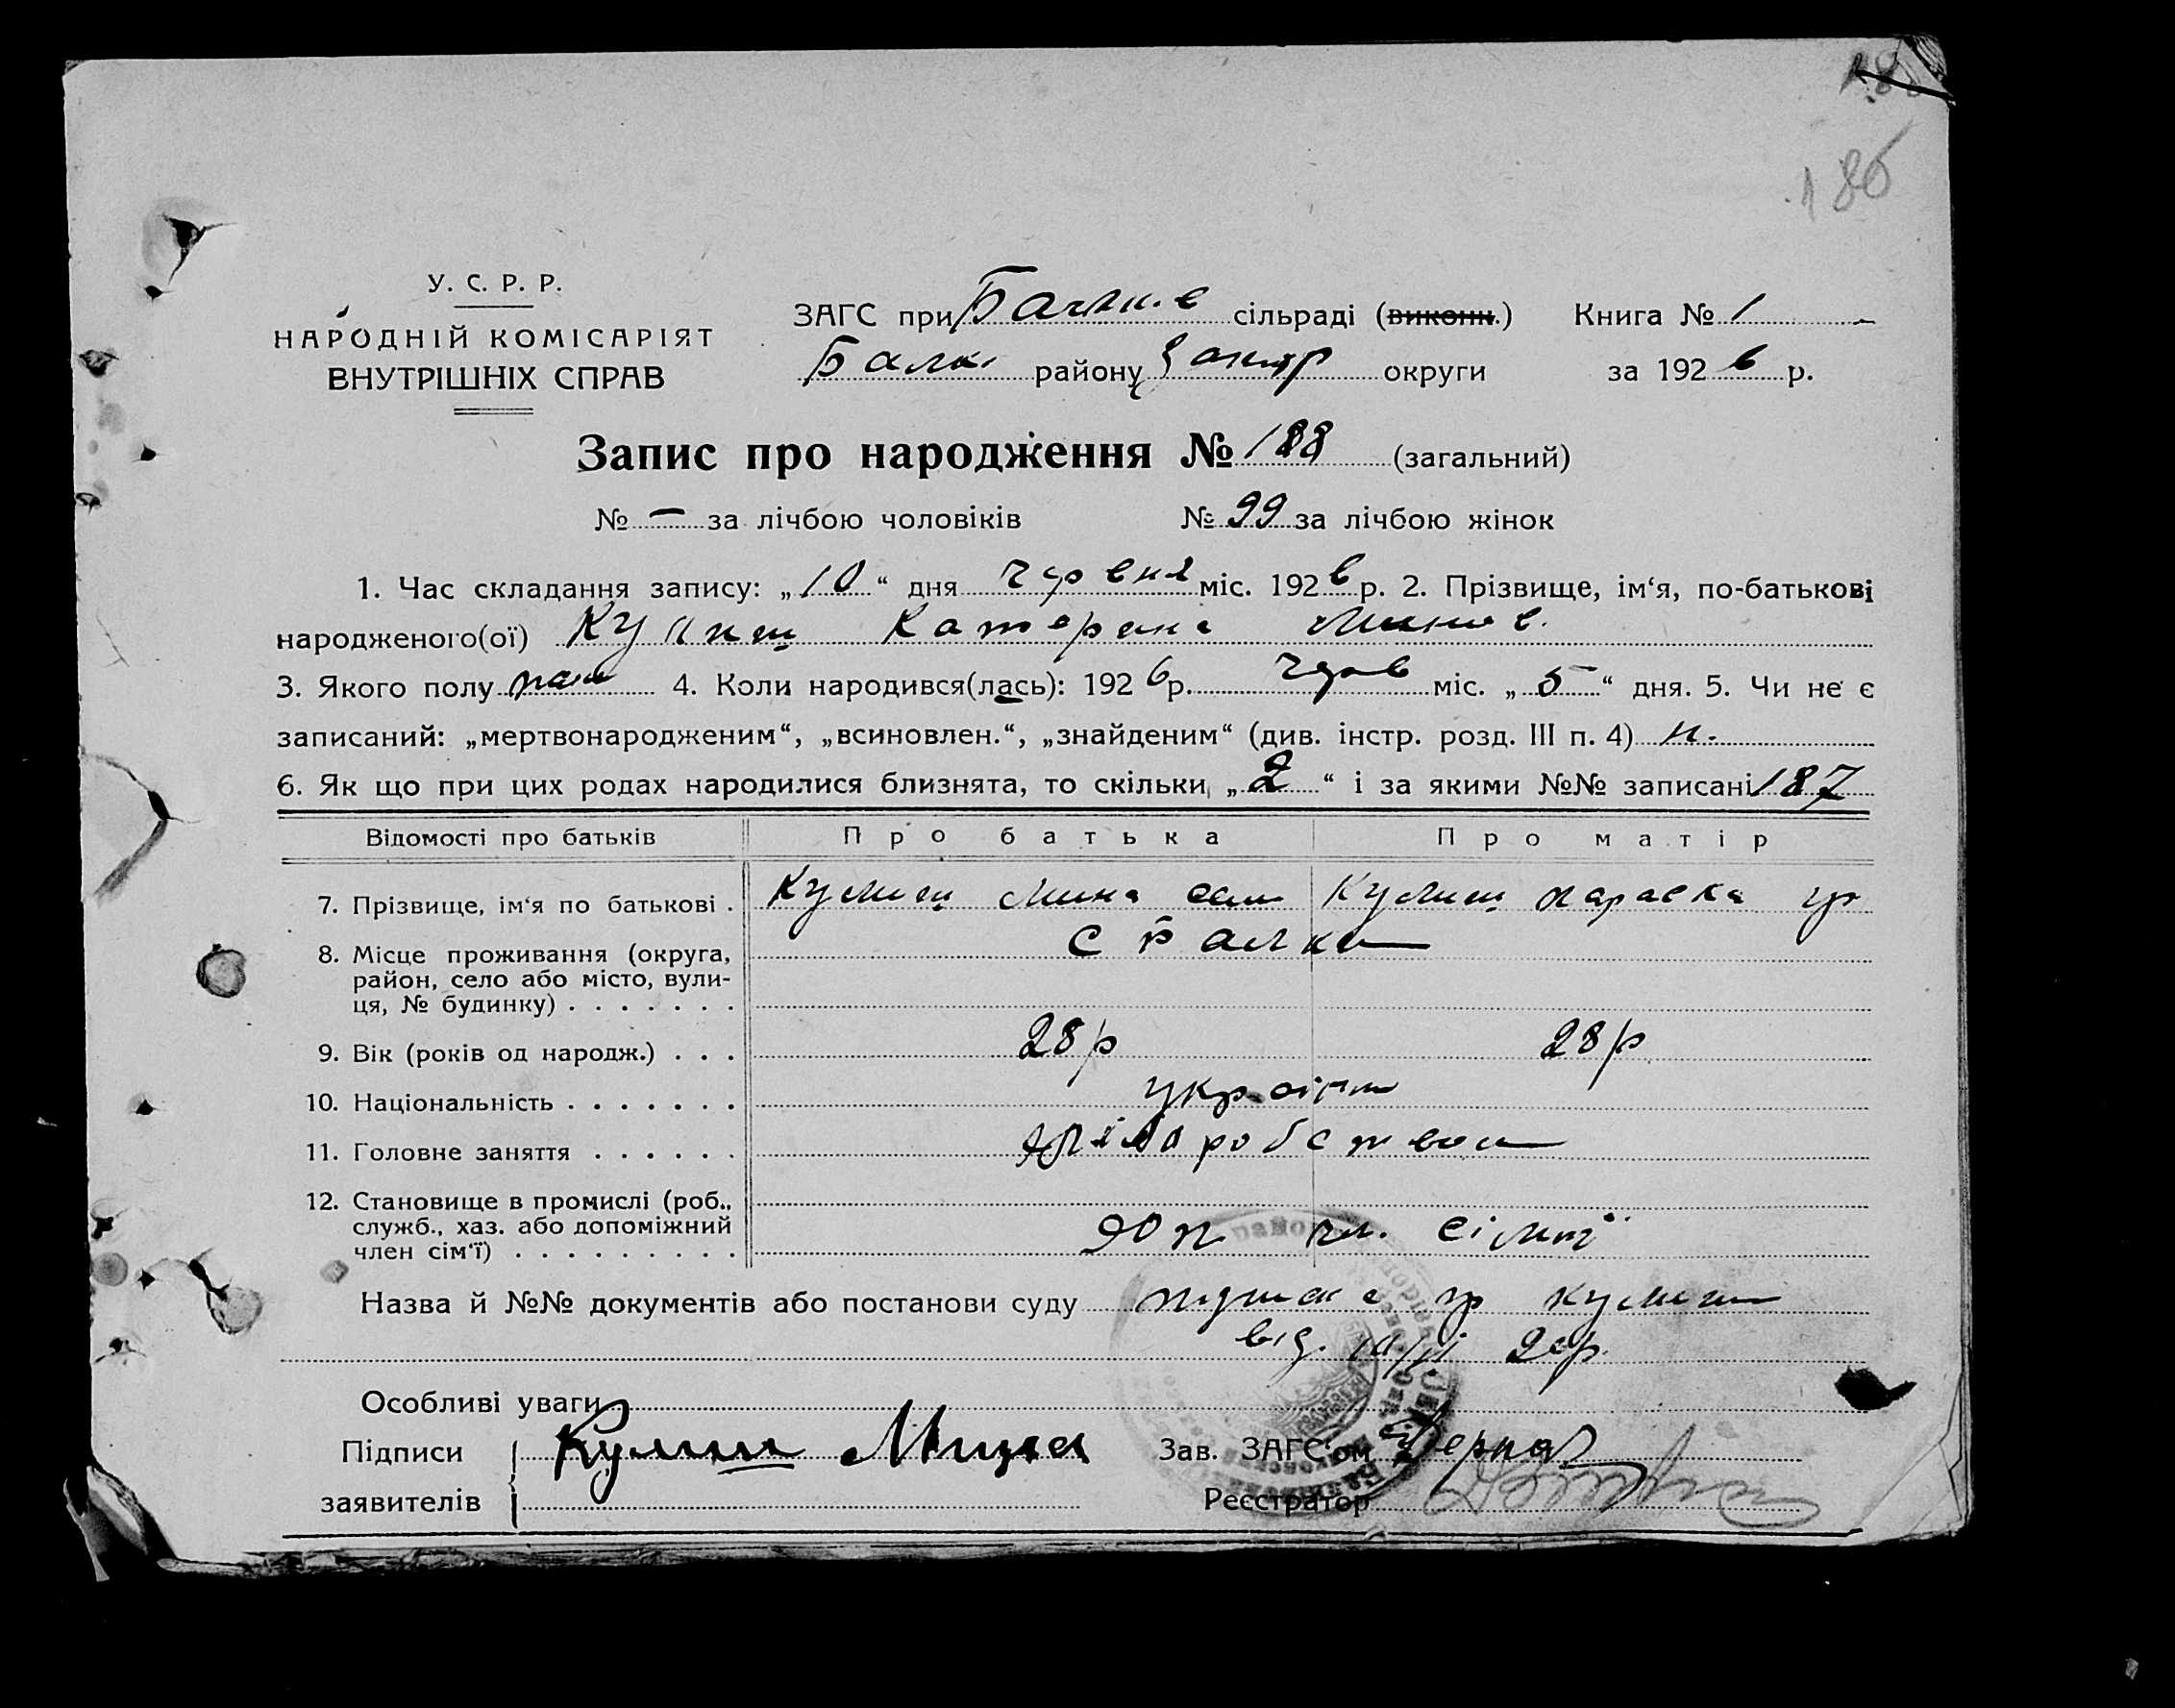 186
У. С. Р. Р.
НАРОДНІЙ КОМІСАРІЯТ
ВНУТРІШНІХ СПРАВ
ЗАГС при сільраді (виконк.) Книга № 1
Балк. району Запор округи за 1926 р.
Запис про народження № 188 (загальний)
№ — за лічбою чоловіків № 99 за лічбою жінок
1. Час складання запису: „10“ дня червня міс. 1926 р. 2. Прізвище, ім‘я, по-батькові
народженого(ої) Кулиш Катерина Минов.
3. Якого полу 4. Коли народився(лась): 1926 р. черв міс. „5“ дня. 5. Чи не є
записаний: „мертвонародженим“, „всиновлен.“, „знайденим“ (див. інстр. розд. III п. 4) н.
6. Як що при цих родах народилися близнята, то скільки „2“ і за якими №№ записані 187
Відомості про батьків Про батька Про матір
7. Прізвище, ім‘я по батькові . Кулиш Мина сам Кулиш Параска гр
8. Місце проживання (округа,
район, село або місто, вули-
ця, № будинку) . . . . . . . с Балки
9. Вік (років од народж.) . . . 28 р 28 р
10. Національність . . . . . . . україн
11. Головне заняття . . . . . . хліборобством
12. Становище в промислі (роб.,
служб., хаз. або допоміжний
член сім‘ї) . . . . . . . . . доп чл. сімї
Назва й №№ документів або постанови суду гр Кулиш
від.
Особливі уваги
Підписи Кулиш Мина Зав. ЗАГС‘ом
заявителів Реєстратор